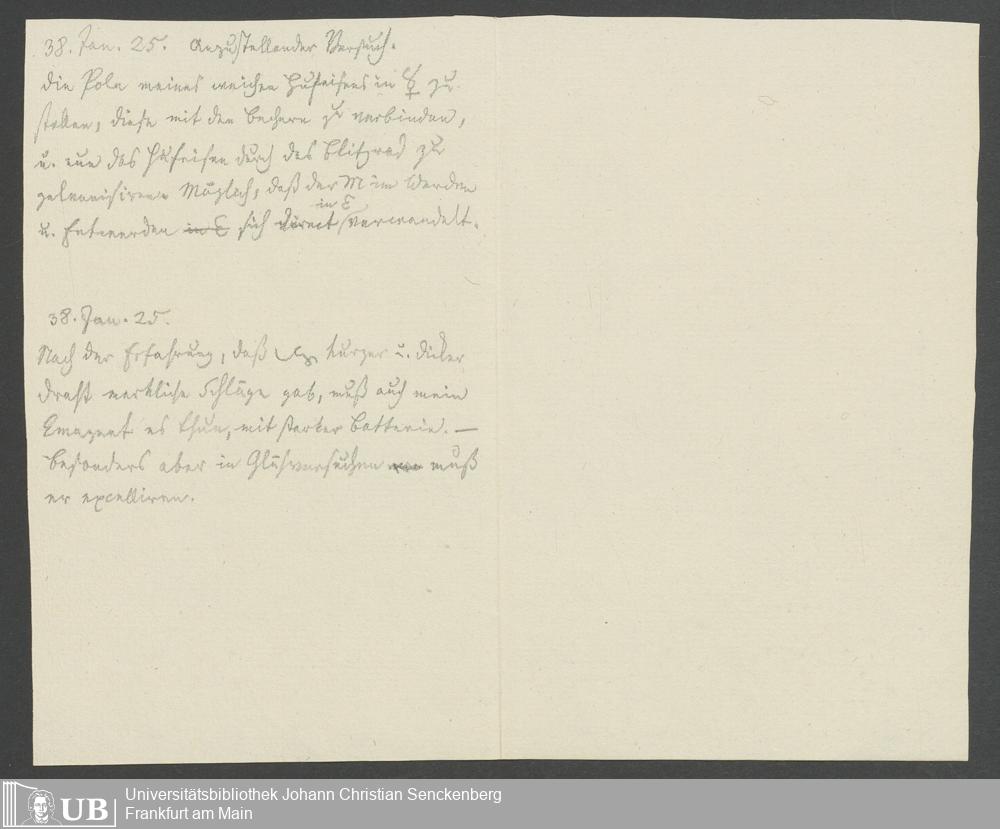 38. Jan. 25. Anzustellender Versuch.
die Pole meines weichen Hufeisens in ☿ zu
stellen, diese mit den Bechern zu verbinden,
u. nun das Hufeisen durch das Blitzrad zu
galvanisiren. Möglich, daß der M im Werden
in E
u. Entwerden in E sich direct verwandelt.
38. Jan. 25.
Nach der Erfahrung, daß kurzer u. dicker
Draht merkliche Schläge gab, muß auch mein
Emagnet es thun, mit starker Batterie. —
besonders aber in Glühversuchen muß
er excelliren.
UB
Universitätsbibliothek Johann Christian Senckenberg
Frankfurt am Main